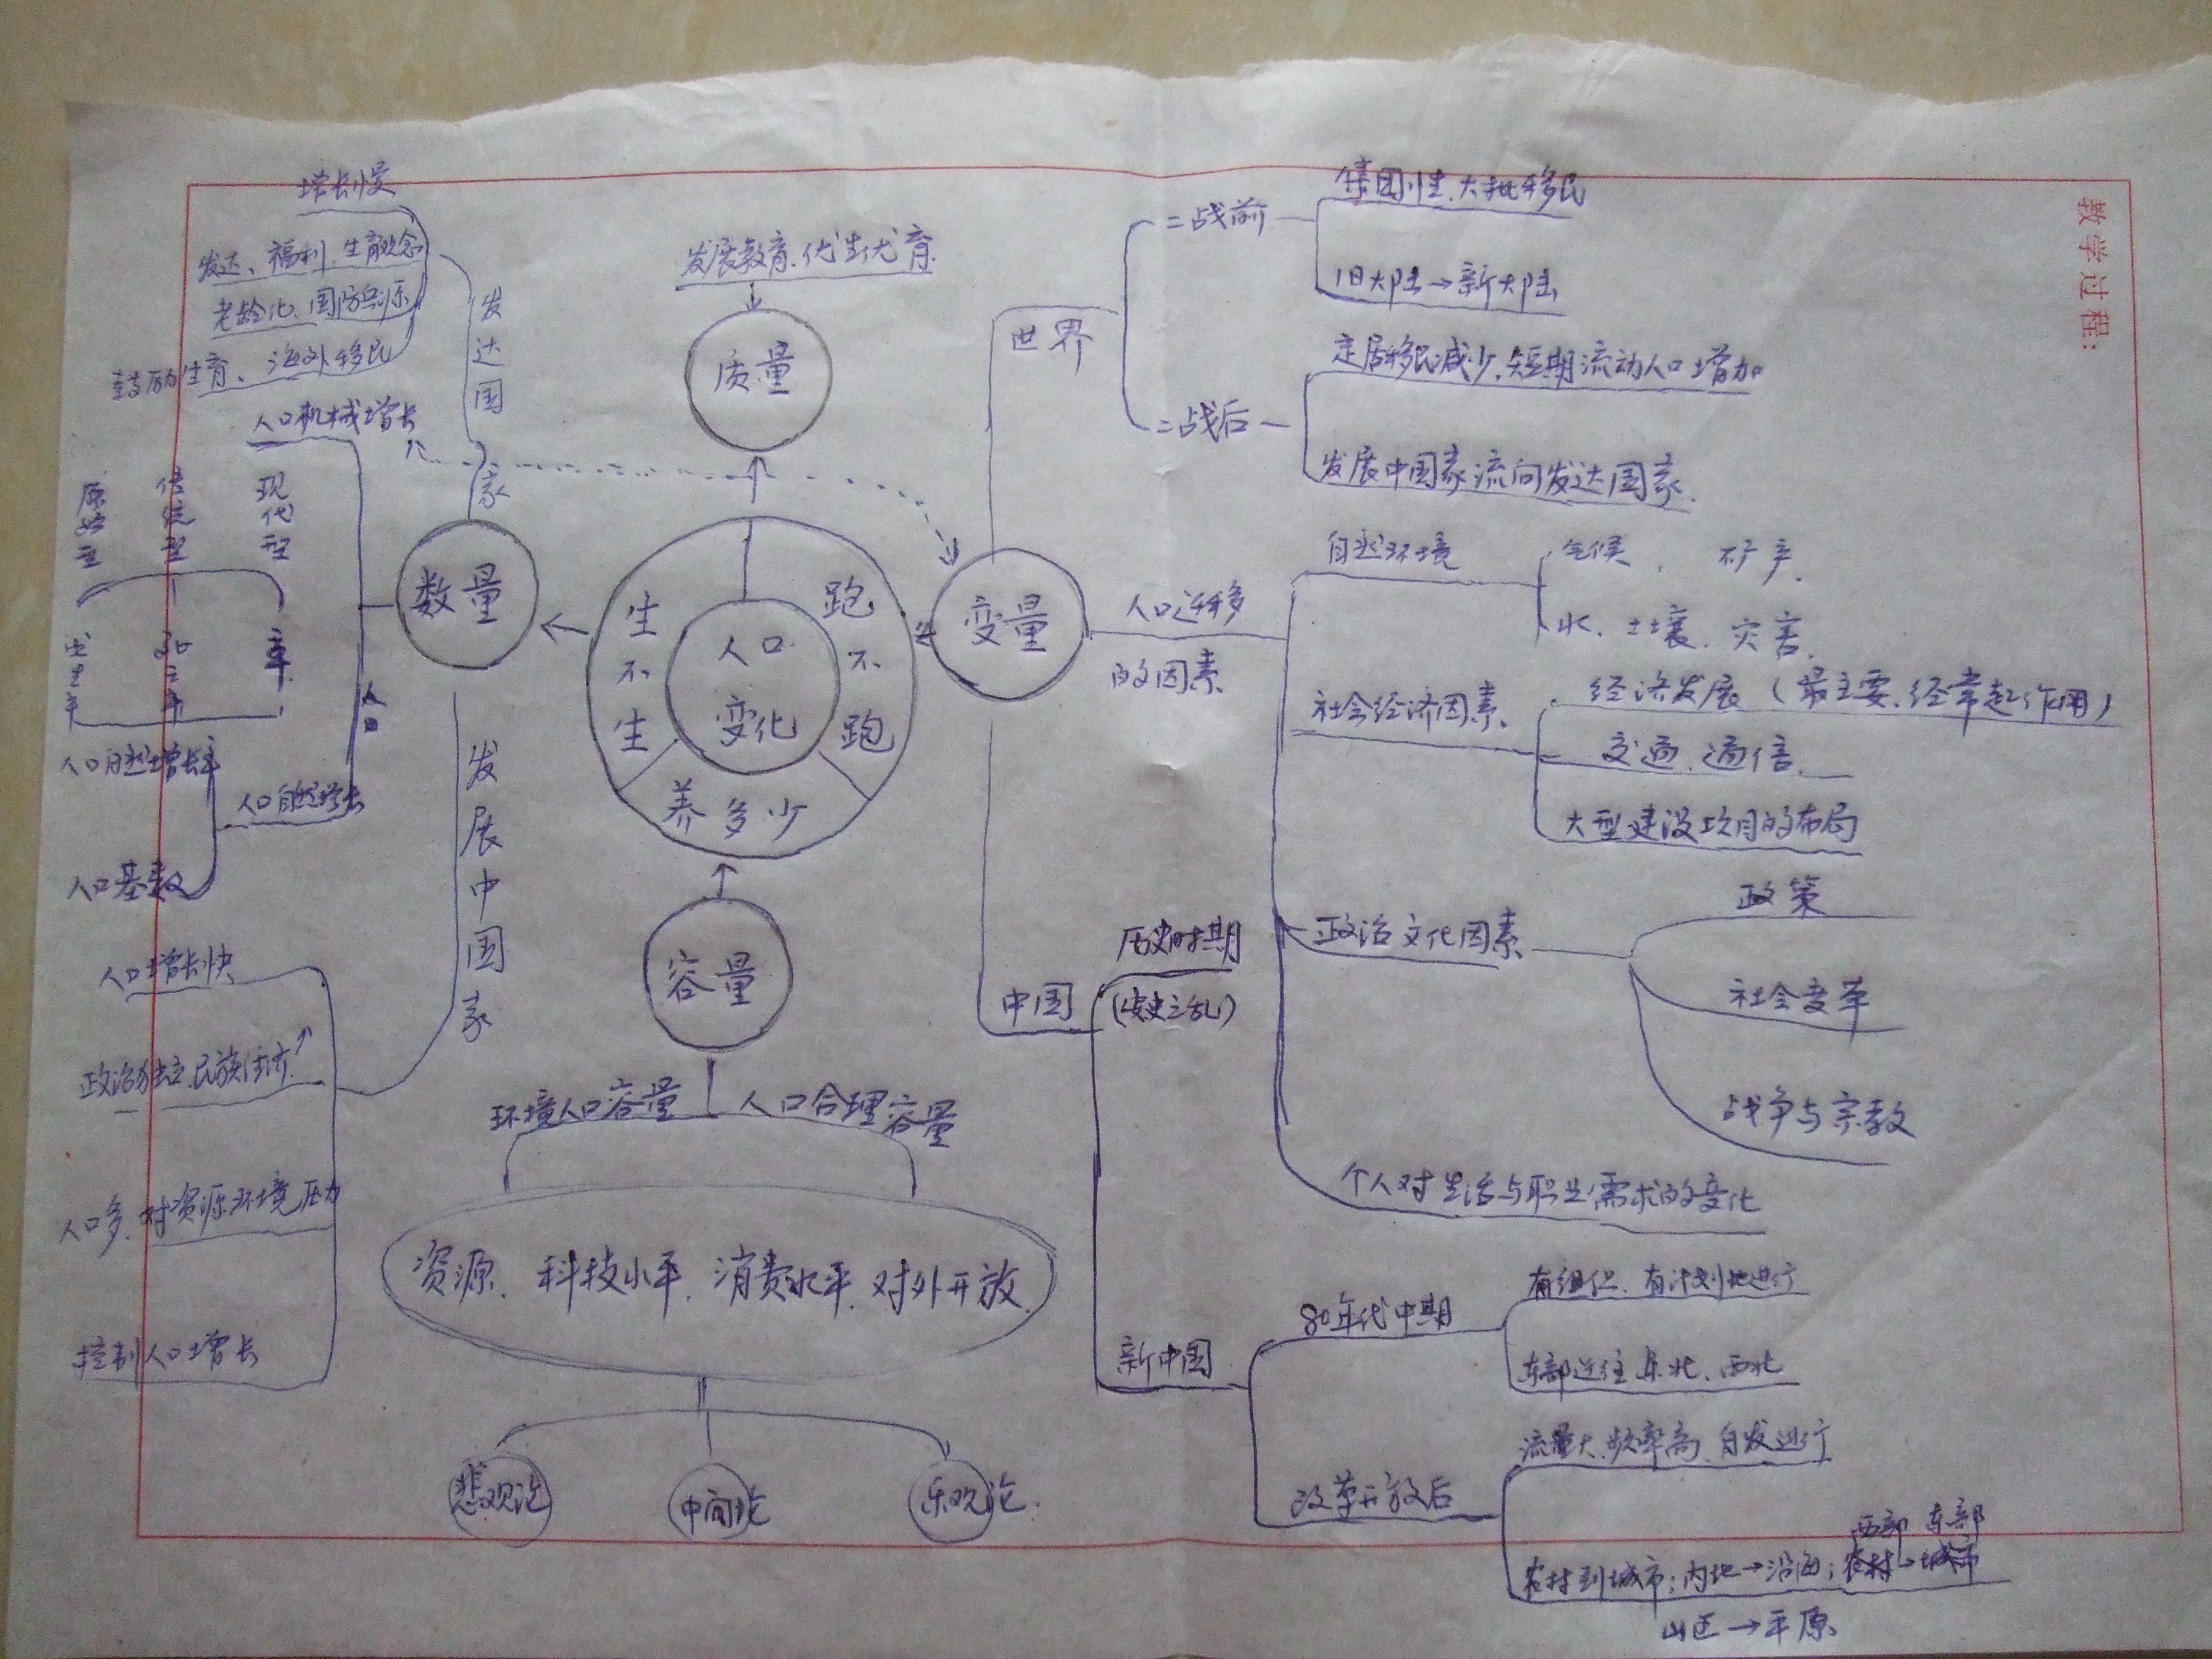 教学过程:
增长慢
发达、福利、生育观念
老龄化、国防兵源
鼓励生育、海外移民
发达国家
发展教育、优生优育
质量
数量
人口机械增长
原始型
传统型
现代型
出生率
死亡率
人口自然增长率
人口自然增长
人口基数
人口
发展中国家
人口增长快
政治独立、民族经济↑
人口多、对资源环境压力
控制人口增长
人口
变化
生不生
跑不跑
养多少
容量
环境人口容量
人口合理容量
资源、科技水平、消费水平、对外开放
悲观论
中间论
乐观论
变量
世界
二战前
集团性、大批移民
旧大陆→新大陆
二战后
定居移民减少、短期流动人口增加
发展中国家流向发达国家
人口迁移
的因素
自然环境
气候、矿产
水、土壤、灾害
社会经济因素
经济发展(最主要、经常起作用)
交通、通信
大型建设项目的布局
政治文化因素
政策
社会变革
战争与宗教
个人对生活与职业需求的变化
中国
历史时期
(安史之乱)
新中国
80年代中期
有组织、有计划地进行
东部迁往东北、西北
改革开放后
流量大、频率高、自发进行
西部 东部
农村到城市;内地→沿海;
山区→平原